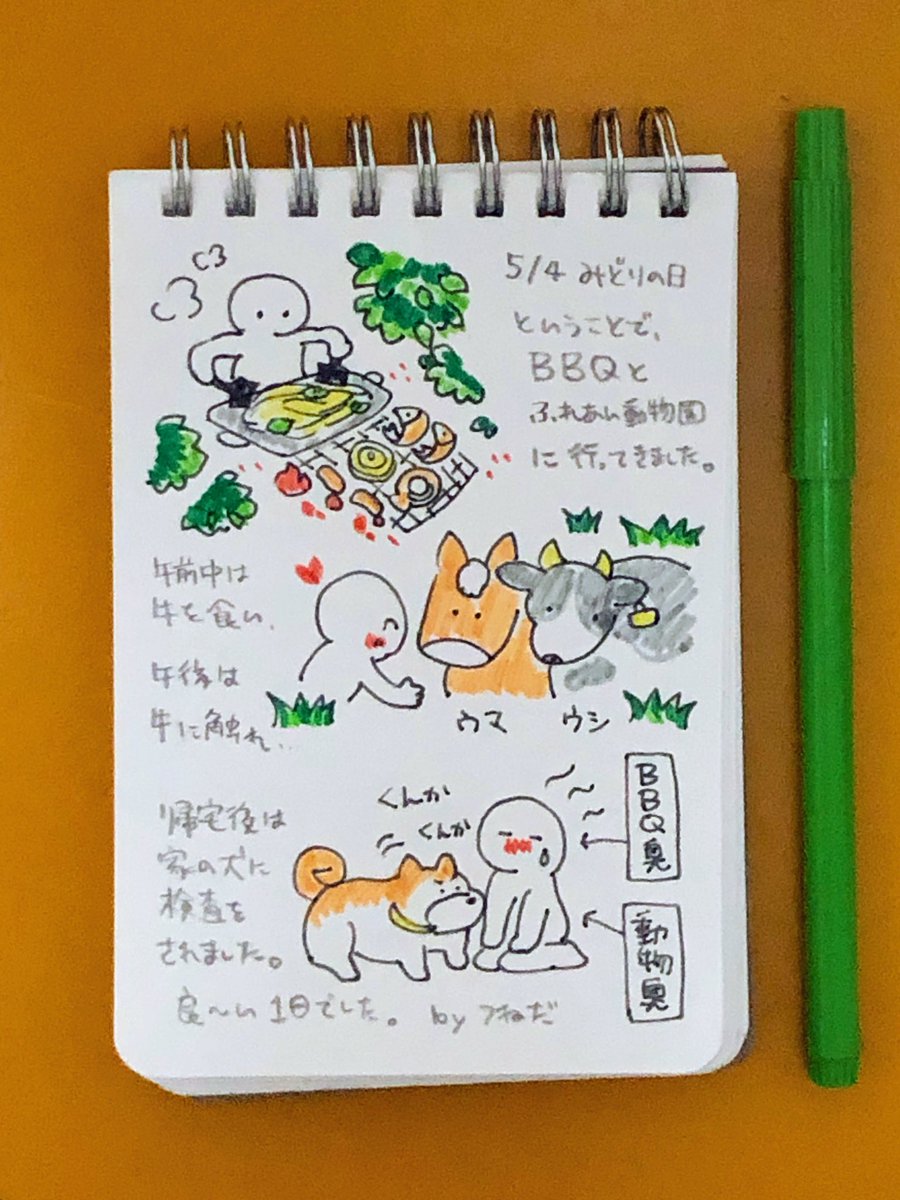 5/4 みどりの日
ということで、
BBQと
ふれあい動物園
に行ってきました。
午前中は
牛を食い、
午後は
牛に触れ…
ウマ
ウシ
帰宅後は
家の犬に
検査を
されました。
くんか
くんか
BBQ臭
動物臭
良〜い1日でした。 by つねだ